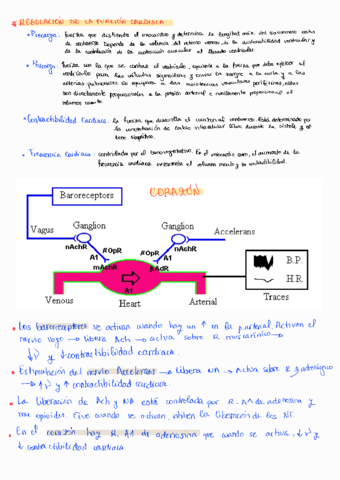 * REGULACIÓN DE LA FUNCIÓN CARDIACA
• Precarga: fuerza que distiende el miocardio y determina la longitud máx. del sarcómero antes
de contraerse. Depende de la volemia, del retorno venoso, de la distensibilidad ventricular y
de la contribución de la contracción auricular al llenado ventricular.
fuerza con la que se contrae el ventrículo, equivale a la fuerza que debe ejercer el
ventrículo para las válvulas sigmoideas y enviar la sangre a la aorta y a las
arterias pulmonares. Se equipara a las resistencias vasculares periféricas, estas
son directamente proporcionales a la presión arterial e inversamente proporcional al
volumen
• Contractibilidad Cardiaca: la fuerza que desarrolla el corazón al contraerse. Está determinada por
la concentración de calcio intracelular libre durante la sístole y el
tono simpático.
• Frecuencia Cardiaca: controlada por el
frecuencia cardiaca incrementa el volumen minuto y la contractibilidad.
CORAZÓN
Baroreceptors
Vagus
Ganglion
Ganglion
Accelerans
nAchR
nAchR
ROpR
ROpR
A1
A1
mAchR
βAdR
A1
B.P.
H.R.
Venous
Heart
Arterial
Traces
• Los baroreceptores se activan cuando hay un ↑ en la p. arterial. Activan el
nervio vago → libera Ach → actúa sobre R. muscarínico →
↓ν y ↓ contractibilidad cardiaca.
• Estimulación del nervio Accelerans → libera NA → Actúa sobre R. β adrenérgico
→ ↑ν y ↑ contractibilidad cardiaca.
• La liberación de Ach y NA está controlada por R. A1 de adenosina y
mu opioides. Que cuando se activan, inhiben la liberación de los NT.
• En el corazón hay R. A1 de adenosina que cuando se activa, ↓ν y
↓ contractibilidad cardiaca